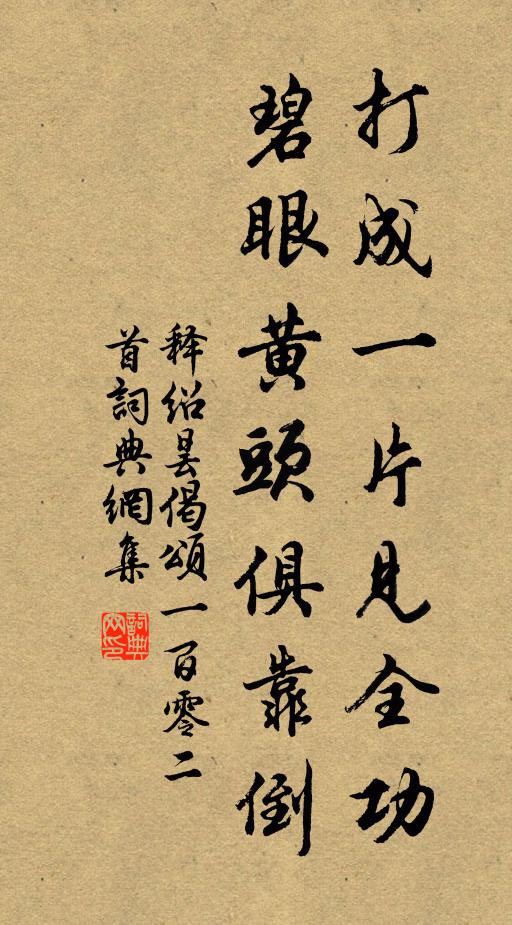 打成一片見全功
碧眼黄頭俱靠倒
释绍昙偈頌一百零二
首詞典網集
詞典
網印